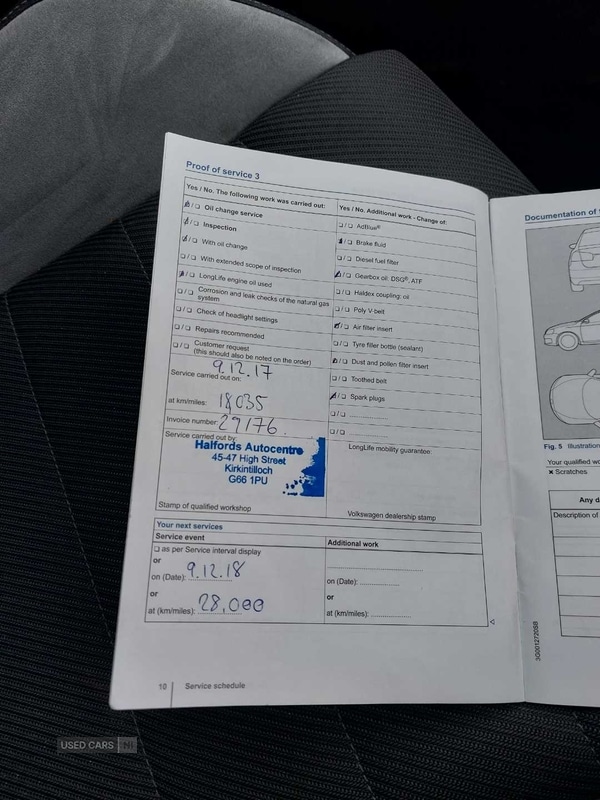 Proof of service 3
Yes / No. The following work was carried out:
☑ / ☐ Oil change service
☑ / ☐ Inspection
☑ / ☐ With oil change
☐ / ☐ With extended scope of inspection
☑ / ☐ LongLife engine oil used
☐ / ☐ Corrosion and leak checks of the natural gas
system
☐ / ☐ Check of headlight settings
☐ / ☐ Repairs recommended
☐ / ☐ Customer request
(this should also be noted on the order)
Service carried out on: 9.12.17
at km/miles: 18,035
Invoice number: 29176
Service carried out by:
Halfords Autocentre
45-47 High Street
Kirkintilloch
G66 1PU
Stamp of qualified workshop
Yes / No. Additional work - Change of:
☐ / ☐ AdBlue®
☑ / ☐ Brake fluid
☐ / ☐ Diesel fuel filter
☑ / ☐ Gearbox oil: DSG®, ATF
☐ / ☐ Haldex coupling: oil
☐ / ☐ Poly V-belt
☑ / ☐ Air filter insert
☐ / ☐ Tyre filler bottle (sealant)
☑ / ☐ Dust and pollen filter insert
☐ / ☐ Toothed belt
☑ / ☐ Spark plugs
☐ / ☐
☐ / ☐
LongLife mobility guarantee:
Volkswagen dealership stamp
Your next services
Service event
☐ as per Service interval display
or
on (Date): 9.12.18
or
at (km/miles): 28,000
Additional work
on (Date):
or
at (km/miles):
10 Service schedule
Documentation of
Fig. 5 Illustration
Your qualified wo
✖ Scratches
Any d
Description of
3G0012720SB
USED CARS NI